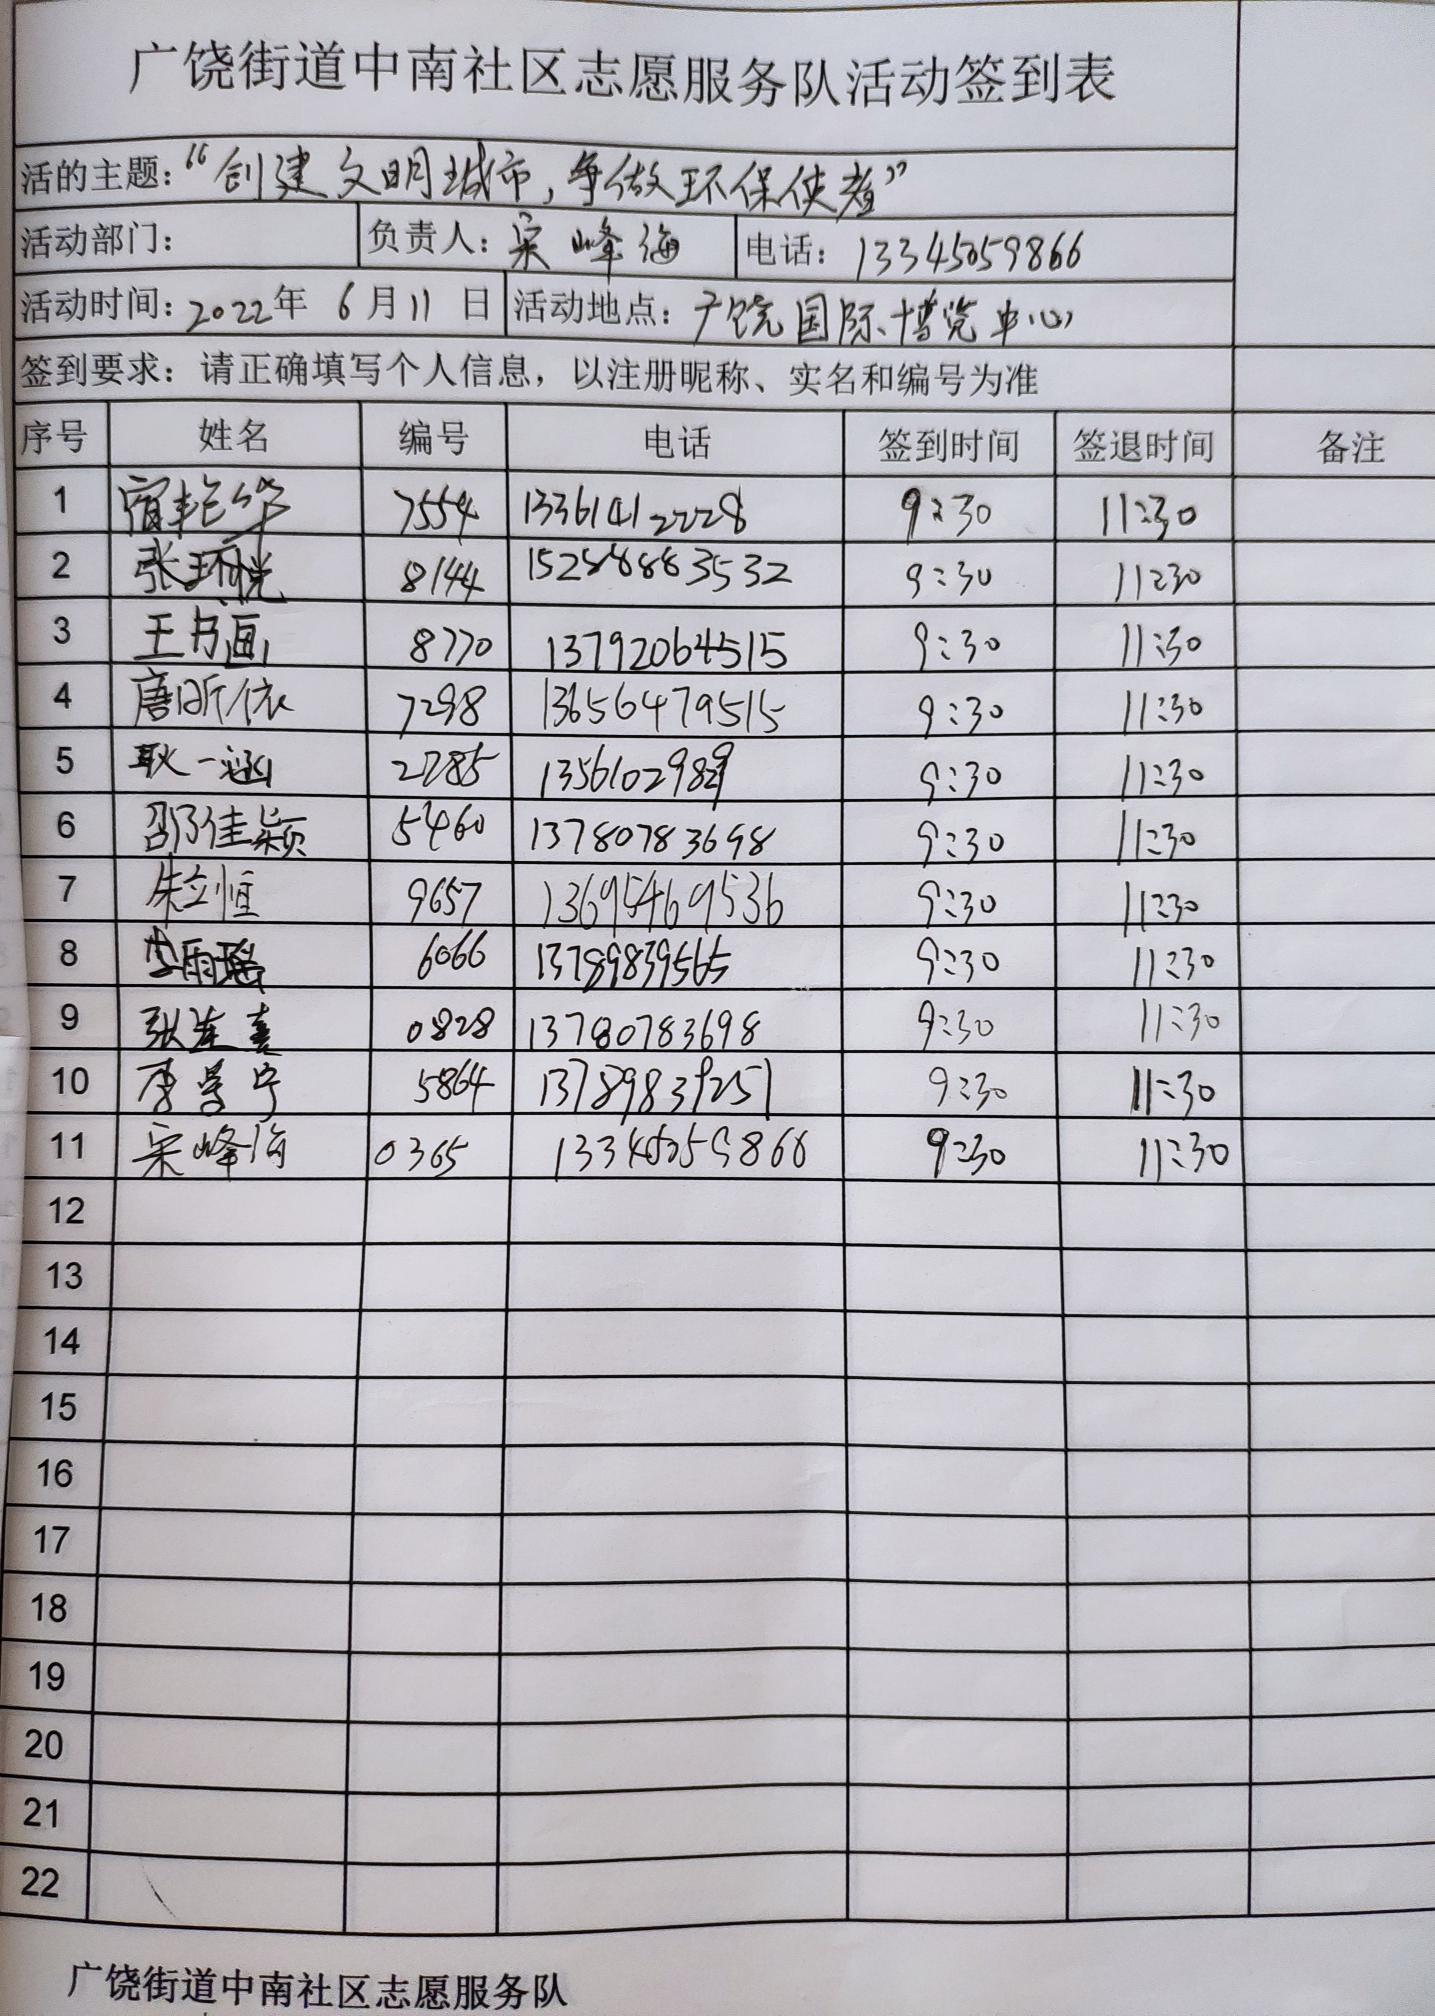 广饶街道中南社区志愿服务队活动签到表
活的主题：“创建文明城市，争做环保使者”
活动部门： 负责人：宋峰海 电话：13345059866
活动时间：2022年 6月11日 活动地点：广饶国际博览中心
签到要求：请正确填写个人信息，以注册昵称、实名和编号为准
序号 姓名 编号 电话 签到时间 签退时间 备注
1 宿艳华 7554 13361412228 9:30 11:30
2 8144 15288883532 9:30 11:30
3 王书画 8770 13792064515 9:30 11:30
4 唐昕依 7298 13656479515 9:30 11:30
5 耿一涵 2285 9:30 11:30
6 邵佳颖 5460 13780783698 9:30 11:30
7 朱立恒 9657 13695469536 9:30 11:30
8 李雨瑶 6066 13789839565 9:30 11:30
9 0828 13780783698 9:30 11:30
10 5864 13789839251 9:30 11:30
11 宋峰海 0365 13345059866 9:30 11:30
12
13
14
15
16
17
18
19
20
21
22
广饶街道中南社区志愿服务队